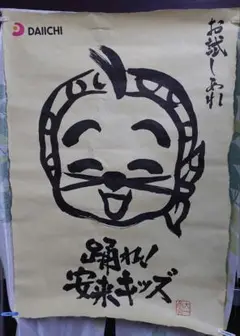 DAIICHI
お試しあれ
踊れ!
安来キッズ